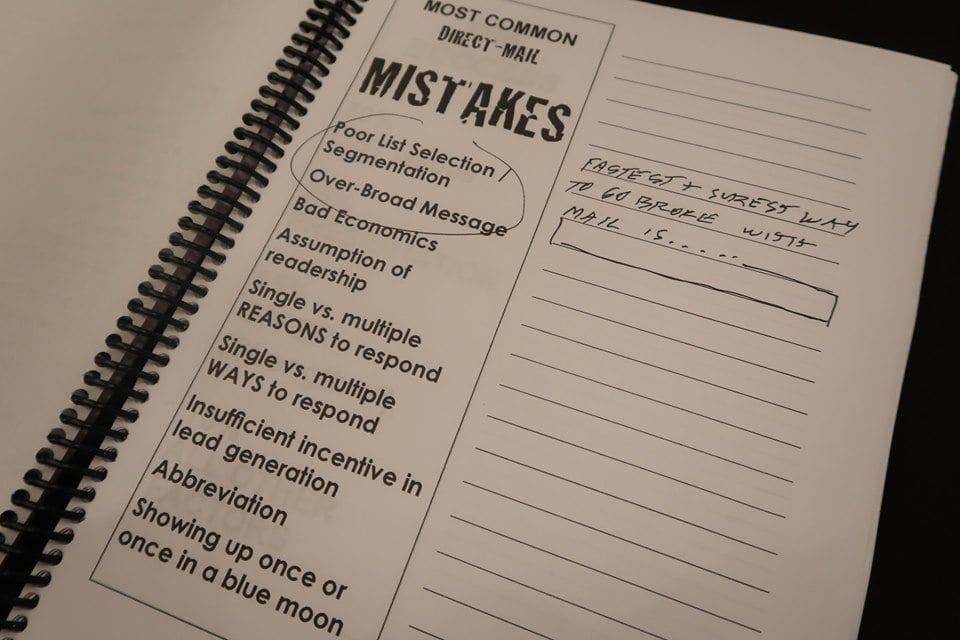 MOST COMMON
DIRECT-MAIL
MISTAKES
Poor List Selection /
Segmentation
Over-Broad Message
Bad Economics
Assumption of
readership
Single vs. multiple
REASONS to respond
Single vs. multiple
WAYS to respond
Insufficient incentive in
lead generation
Abbreviation
Showing up once or
once in a blue moon
FASTEST + SUREST WAY
TO GO BROKE WITH
MAIL IS.....